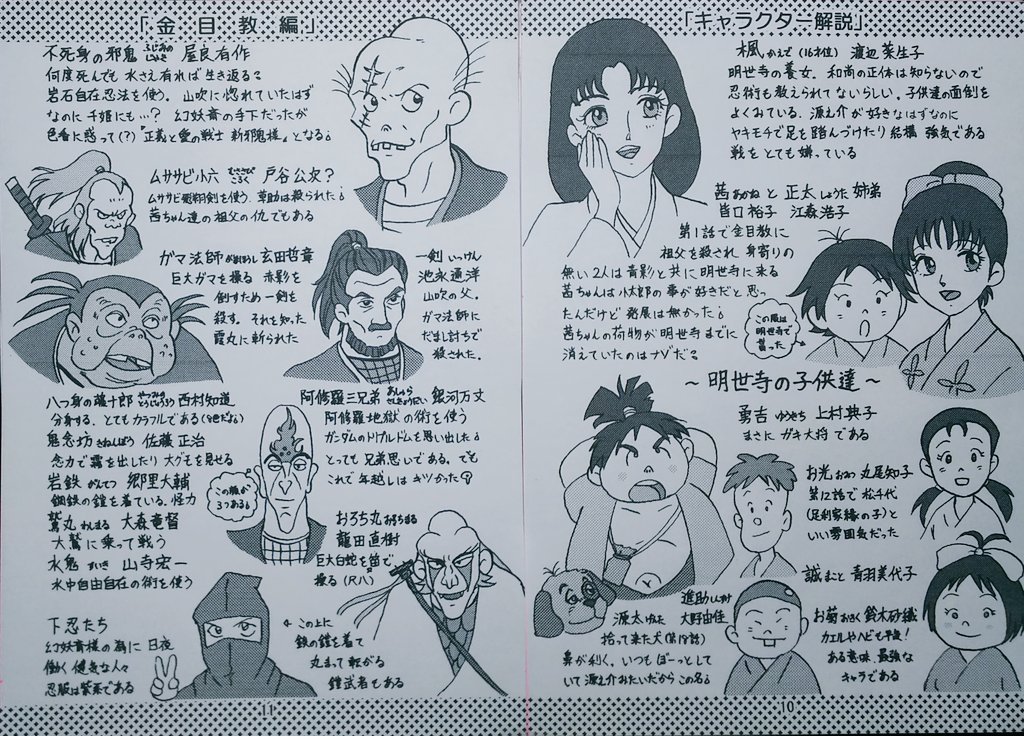 「キャラクター解説」
楓 かえで (16才位) 渡辺菜生子
明世寺の養女。和尚の正体は知らないので
忍術も教えられてないらしい。子供達の面倒を
よくみている。源之介が好きなはずなのに
ヤキモチで足を踏んづけたり結構強気である
戦をとても嫌っている
茜 あかね と 正太 しょうた 姉弟
皆口裕子 江森浩子
第1話で金目教に
祖父を殺され身寄りの
無い2人は青影と共に明世寺に来る
茜ちゃんは小太郎の事が好きだと思っ
たんだけど発展は無かった
茜ちゃんの荷物が明世寺までに
消えていたのはナゾだ?
この服は
明世寺で
貰った
～明世寺の子供達～
勇吉 ゆうきち 上村典子
まさにガキ大将である
お光 おみつ 丸尾知子
第12話で松千代
(足利家縁の子)と
いい雰囲気だった
進助 しんすけ
大野由佳
誠 まこと 青羽美代子
お菊 おきく 鈴木砂織
カエルやヘビも平気!
ある意味 最強な
キャラである
源太 げんた
拾って来た犬(第18話)
鼻が利く。いつもぼーっとして
いて源之介みたいだからこの名
10
「金目教編」
不死身の邪鬼 ふじみの じゃき 屋良有作
何度死んでも水さえ有れば生き返る?
岩石自在忍法を使う。山吹に惚れていたはず
なのに千姫にも…? 幻妖斎の手下だったが
色香に惑って(?)『正義と愛の戦士 新邪鬼様』となる
ムササビ小六 むささび ころく 戸谷公次?
ムササビ飛翔剣を使う。草助は殺られた
茜ちゃん達の祖父の仇でもある
ガマ法師 がまほうし 玄田哲章
巨大ガマを操る 赤影を
倒すため一剣を
殺す。それを知った
霞丸に斬られた
一剣 いっけん
池水通洋
山吹の父。
ガマ法師に
だまし討ちで
殺された。
八つ身の龍十郎 西村知道
分身する。とてもカラフルである
鬼念坊 きねんぼう 佐藤正治
念力で霧を出したり大グモを見せる
岩鉄 がんてつ 郷里大輔
鋼鉄の鎧を着ている。怪力
鷲丸 わしまる 大森竜督
大鷲に乗って戦う
水鬼 すいき 山寺宏一
水中自由自在の術を使う
阿修羅三兄弟 あしゅら さんきょうだい 銀河万丈
阿修羅地獄の術を使う
ガンダムのトリプルドムを思い出した
とっても兄弟思いである。でも
これで年越しはキツかった
この顔が
3つある
おろち丸 おろちまる
龍田直樹
巨大白蛇を笛で
操る(Rハ)
下忍たち
幻妖斎様の為に日夜
働く健気な人々
忍服は紫系である
この上に
鉄の鎧を着て
丸まって転がる
鎧武者もある
11